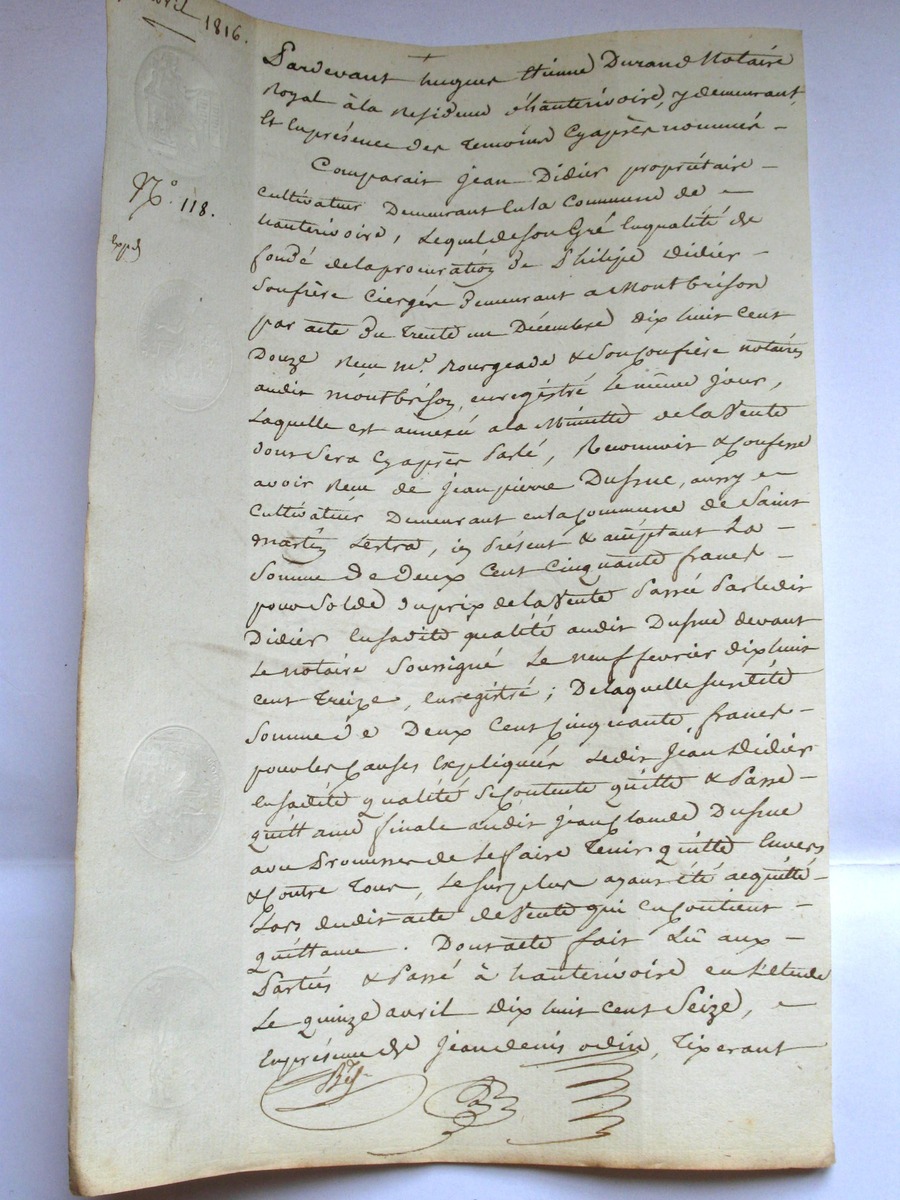 avril 1816.
Pardevant hugues Etienne Durand Notaire
Royal à la Residence d'hauterivoire, y demeurant,
Et Enprésence des temoins Cyaprès nommés –
Comparait jean Didier propriétaire –
cultivateur Demeurant En la Commune de –
hauterivoire, Lequel de son Gré Enqualité de
fondé delaprocuration de Philipe Didier –
Sonfrère Ciergér demeurant a Montbrison
par acte du trente un Décembre dix huit cent
Douze Reçu me. Bourgeade & Sonconfrère notaires
audit montbrison, enregistré Le même jour,
Laquelle est annexée a la Minutte de la Vente
dont Sera Cyaprès Parlé, Reconnoit & Confesse
avoir Reçu de jeanpierre Dufrue, aussy –
Cultivateur Demeurant en la Commune de Saint
martin Lestra, icy Présent & acceptant La –
Somme de Deux Cent Cinquante francs –
pour Solde duprix de la Vente Passée Parledit
Didier Ensadite qualité audit Dufrue devant
Le notaire Soussigné Le neuf fevrier dixhuit
cent treize, enregistré; De laquelle susditte
Somme de Deux Cent Cinquante francs –
pour les Causes Expliquées Ledit Jean Didier
Ensadite qualité Secontente quitte & Passe –
quittance finale audit jean Claude Dufrue
avec Promesse de Le faire tenir quitte Envers
& Contre tous, Le surplus ayant été acquitté –
Lors dudit acte de Vente qui en Contient –
quittance. Dont acte fait Lû aux –
Parties & Passé à hauterivoire en l'Etude
Le quinze avril dix huit cent Seize, –
Enprésence de jean denis odin, Tixerant
N.° 118.
Expd